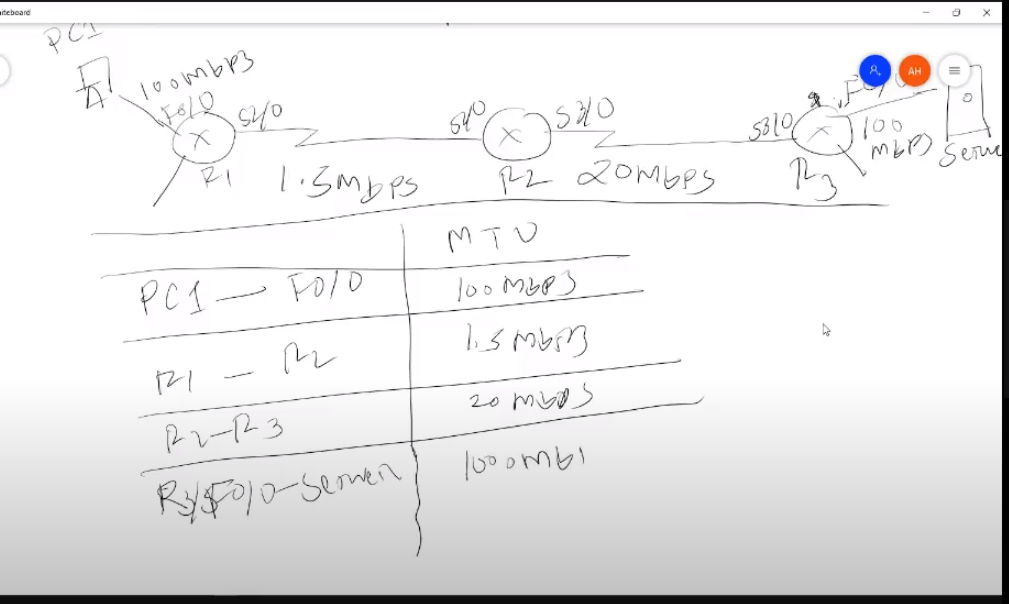 iteboard
AH
PC1
100mbps
F0/0
S2/0
R1
1.5mbps
S2/0
S3/0
R2
20mbps
S3/0
F0/0
R3
100
mbps
Serve
MTU
PC1 — F0/0 100mbps
R1 — R2 1.5mbps
R2-R3 20mbps
F0/0-Server 1000mb